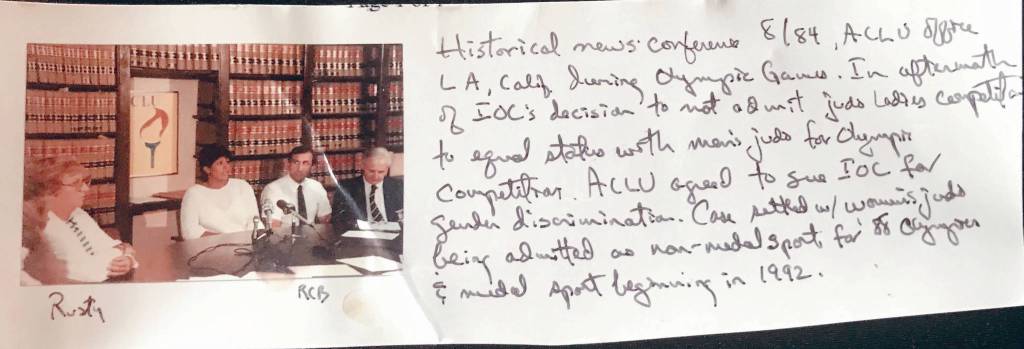 Page 1 of 1
CLU
Historical news conference 8/84, ACLU office
LA, Calif. during Olympic Games. In aftermath
of IOC's decision to not admit judo Ladies competition
to equal status with men's judo for Olympic
Competition. ACLU agreed to sue IOC for
gender discrimination. Case settled w/ women's judo
being admitted as non-medal sport for '88 Olympics
& medal sport beginning in 1992.
Rusty
RCB